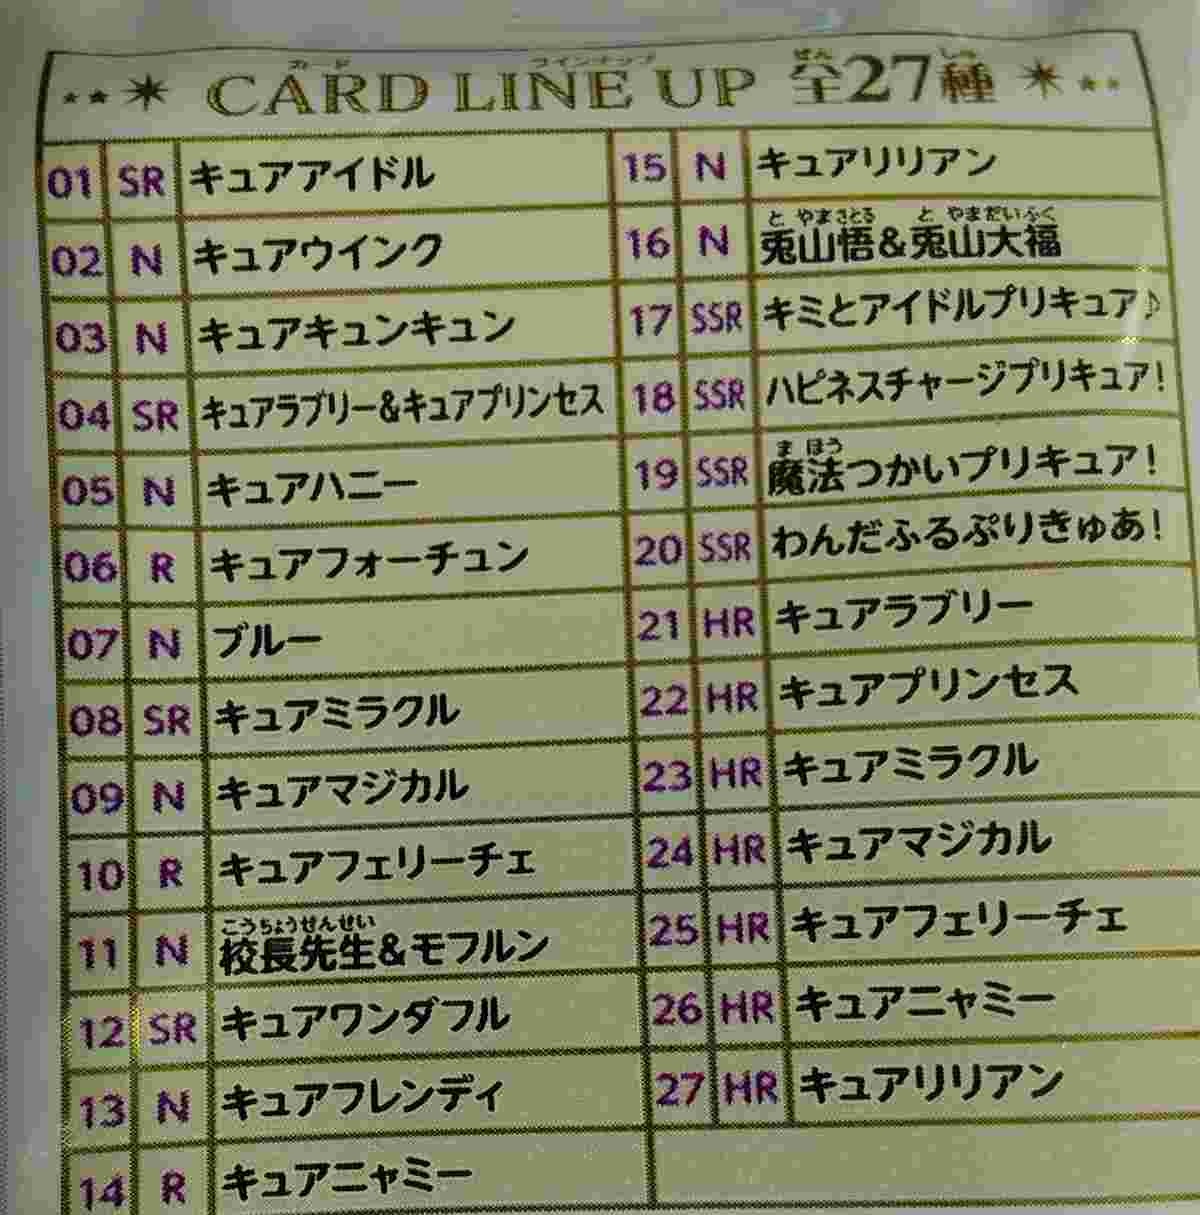 カード ラインナップ ぜん しゅ
CARD LINE UP 全27種
01 SR キュアアイドル
02 N キュアウインク
03 N キュアキュンキュン
04 SR キュアラブリー&キュアプリンセス
05 N キュアハニー
06 R キュアフォーチュン
07 N ブルー
08 SR キュアミラクル
09 N キュアマジカル
10 R キュアフェリーチェ
こうちょうせんせい
11 N 校長先生&モフルン
12 SR キュアワンダフル
13 N キュアフレンディ
14 R キュアニャミー
15 N キュアリリアン
と やまさとる と やまだいふく
16 N 兎山悟&兎山大福
17 SSR キミとアイドルプリキュア♪
18 SSR ハピネスチャージプリキュア!
ま ほう
19 SSR 魔法つかいプリキュア!
20 SSR わんだふるぷりきゅあ!
21 HR キュアラブリー
22 HR キュアプリンセス
23 HR キュアミラクル
24 HR キュアマジカル
25 HR キュアフェリーチェ
26 HR キュアニャミー
27 HR キュアリリアン